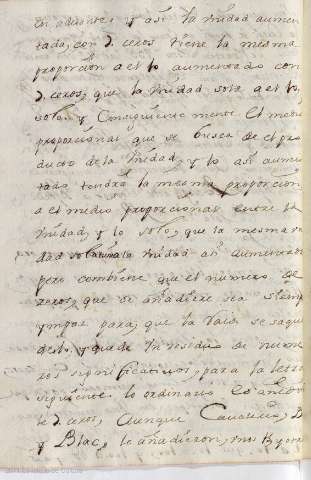 en adelante, y asi la Unidad aumen
tada, con D. ceros tiene la mesma
proporcion a el 10 aumentado con
D. ceros, que la Unidad sola a el 10,
solo, y Consiguiente mente El medio
proporcional que se busca de el pro
ducto de la Unidad, y 10 asi aumen
tado tendra la mesma proporcion
a el medio proporcional entre la
Unidad, y 10 solo, que la mesma
dad sola a la Unidad asi aumentada
pero combiene que el numero de
zeros, que se añadiere sea siempre
para, que la Raiz se saque
y quede Un residuo de nume
ros significativos, para la letra
siguiente lo ordinario es
de D. ceros, Aunque Cavalerio,
y Blac, le añadieron, mas